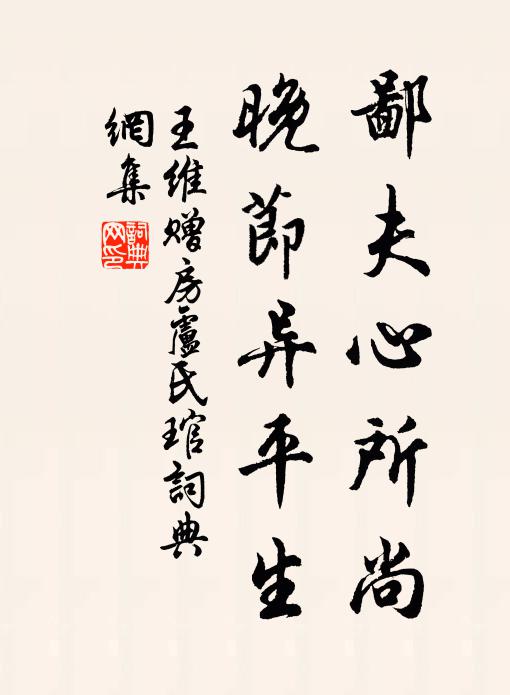 鄙夫心所尚
晚節异平生
王维赠房盧氏琯詞典
網集
詞典网印